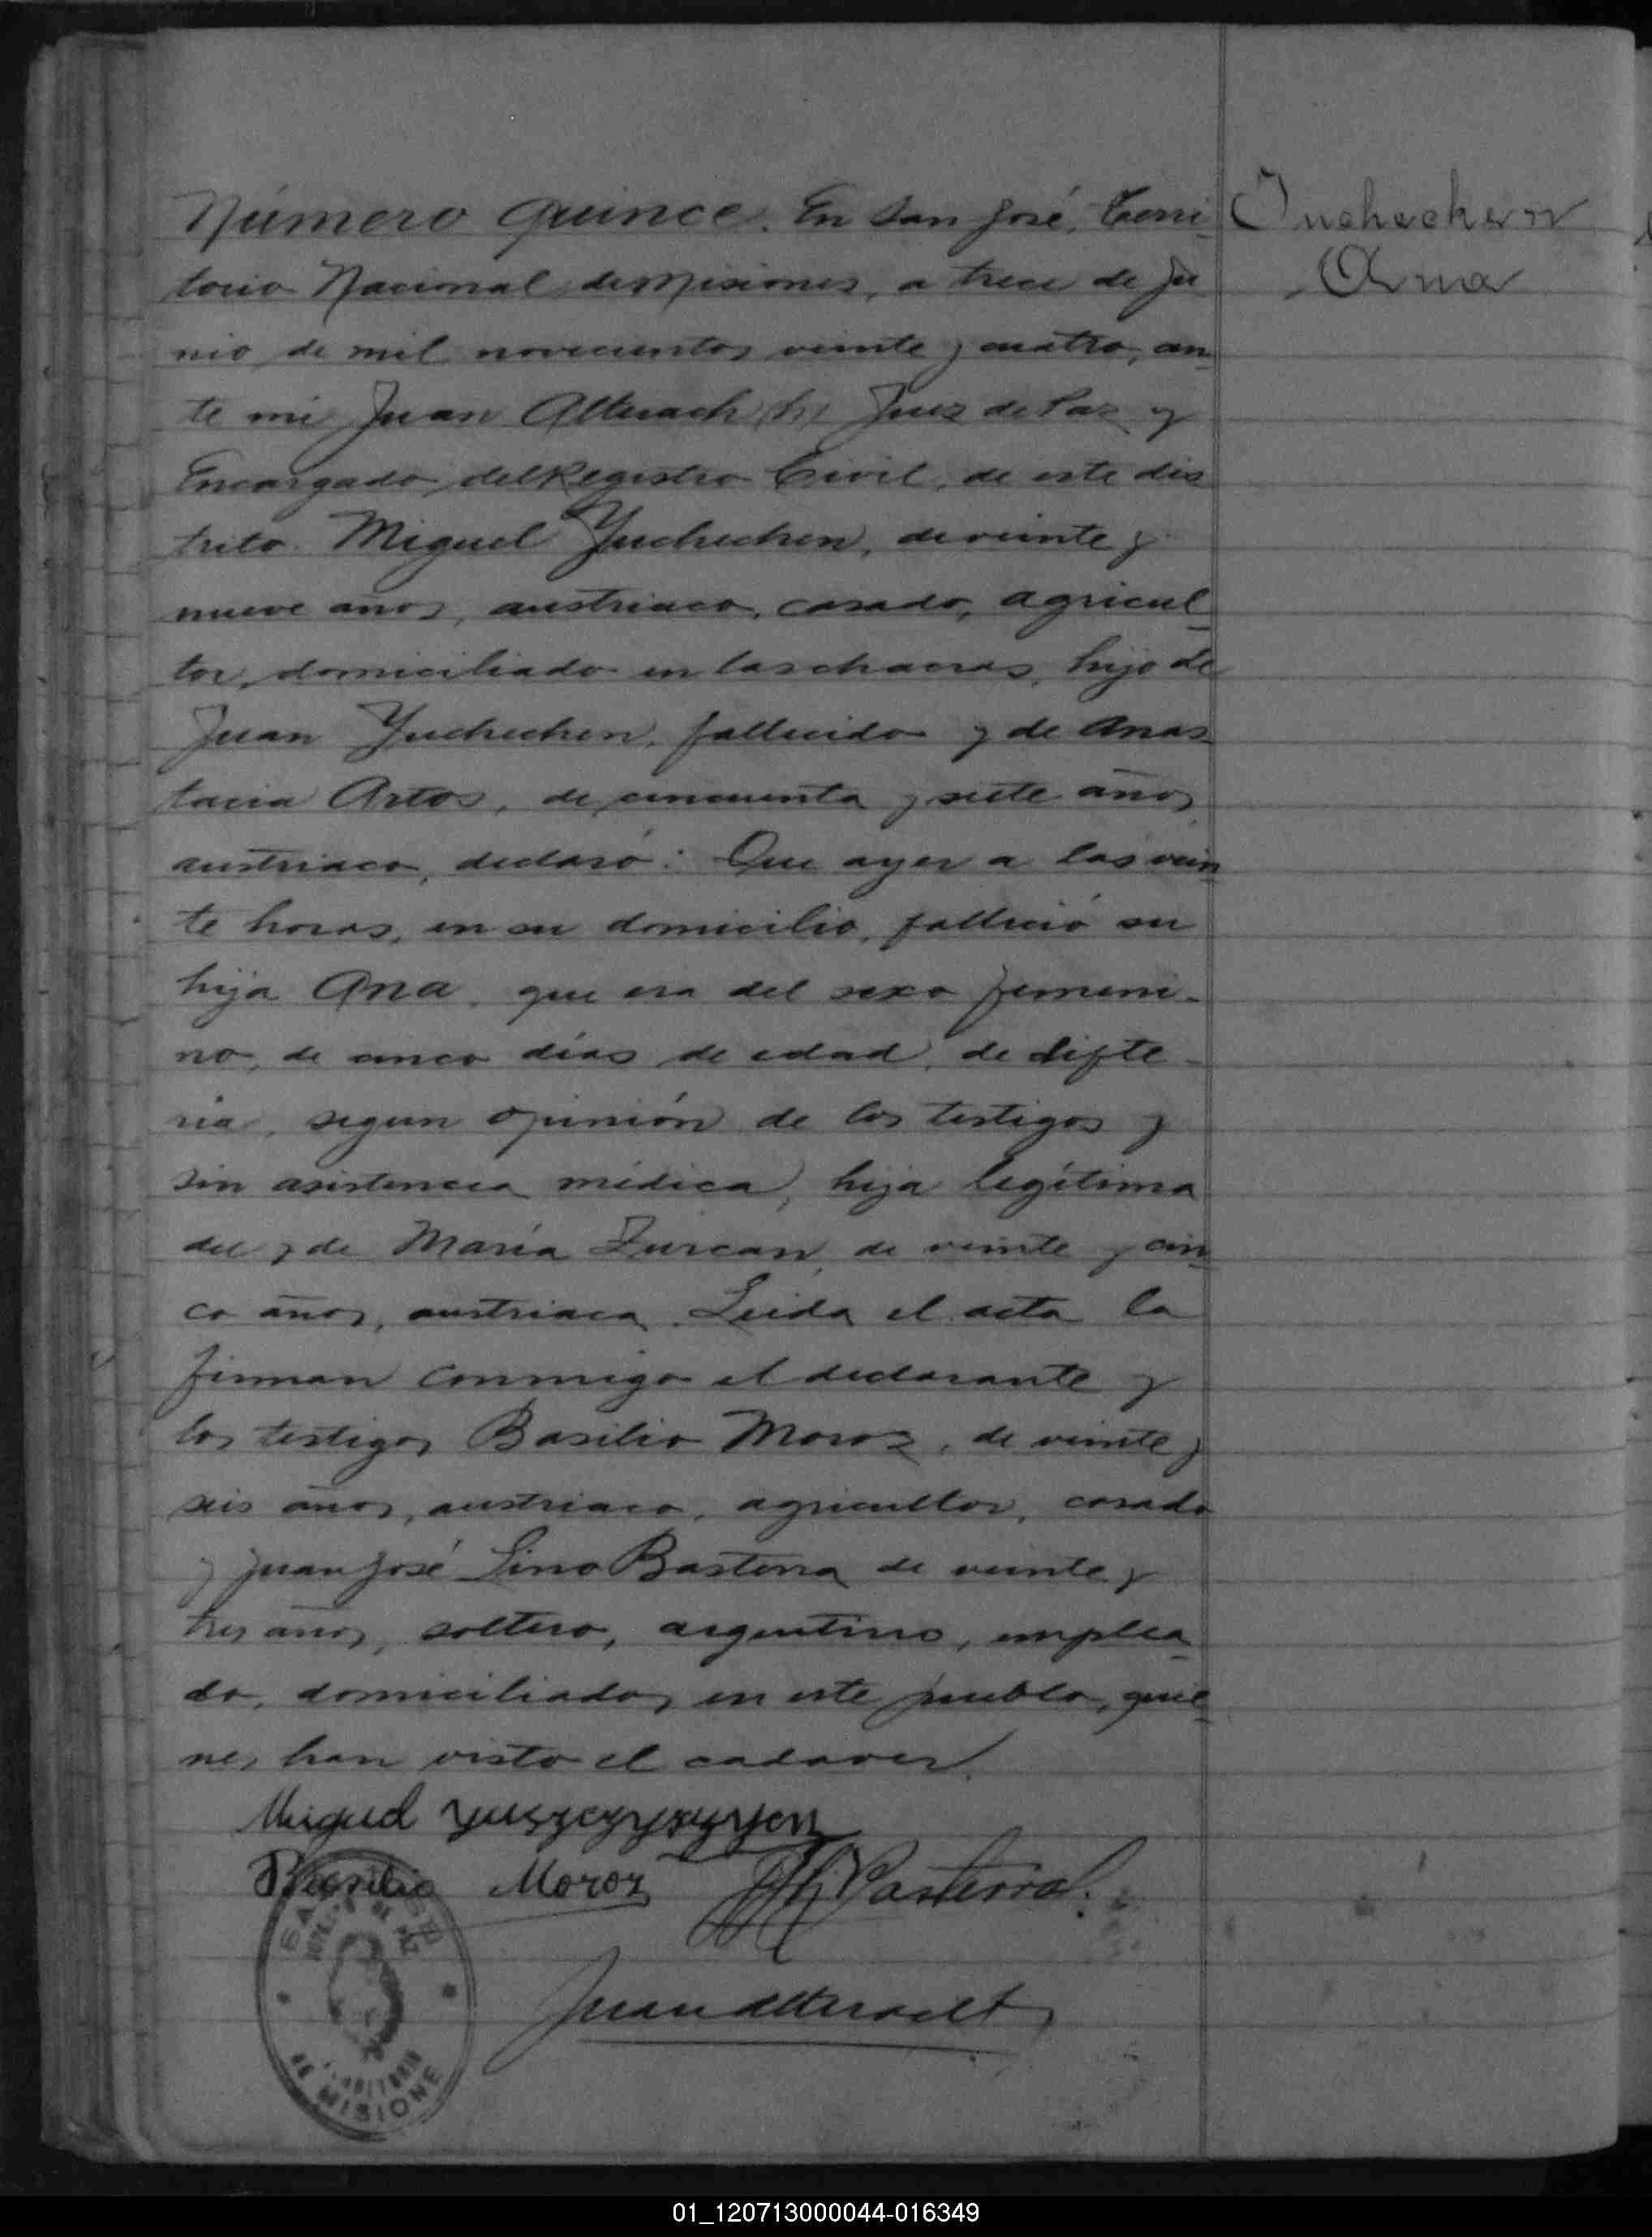 Número quince. En San José, Terri
Juchechen
torio Nacional de Misiones, a trece de ju
Ana
nio de mil novecientos veinte y cuatro, an
te mi Juan Alterach (h) Juez de Paz y
Encargado del Registro Civil, de este dis
trito. Miguel Juchechen, de veinte y
nueve años, austriaco, casado, agricul
tor, domiciliado en las chacras, hijo de
Juan Yuchechen, fallecido y de Anas
tacia Artos, de cincuenta y siete años
austriaco, declaró: Que ayer a las vein
te horas, en su domicilio, falleció su
hija Ana, que era del sexo femeni-
no, de cinco días de edad, de difte-
ria, segun opinión de los testigos y
sin asistencia médica, hija legítima
del y de María Zurcan, de veinte y cin
co años, austriaca. Leida el acta la
firman conmigo el declarante y
los testigos Basilio Moroz, de veinte y
seis años, austriaco, agricultor, casado
y Juan José Lino Basterra de veinte y
tres años, soltero, argentino, emplea
do, domiciliados en este pueblo, quie
nes han visto el cadaver.
Miguel Yuszczyszyen
Basilio Moroz JJL Basterra
Juan Alterach
JUZG. DE PAZ
TERRITORIO
DE MISIONES
01_120713000044-016349